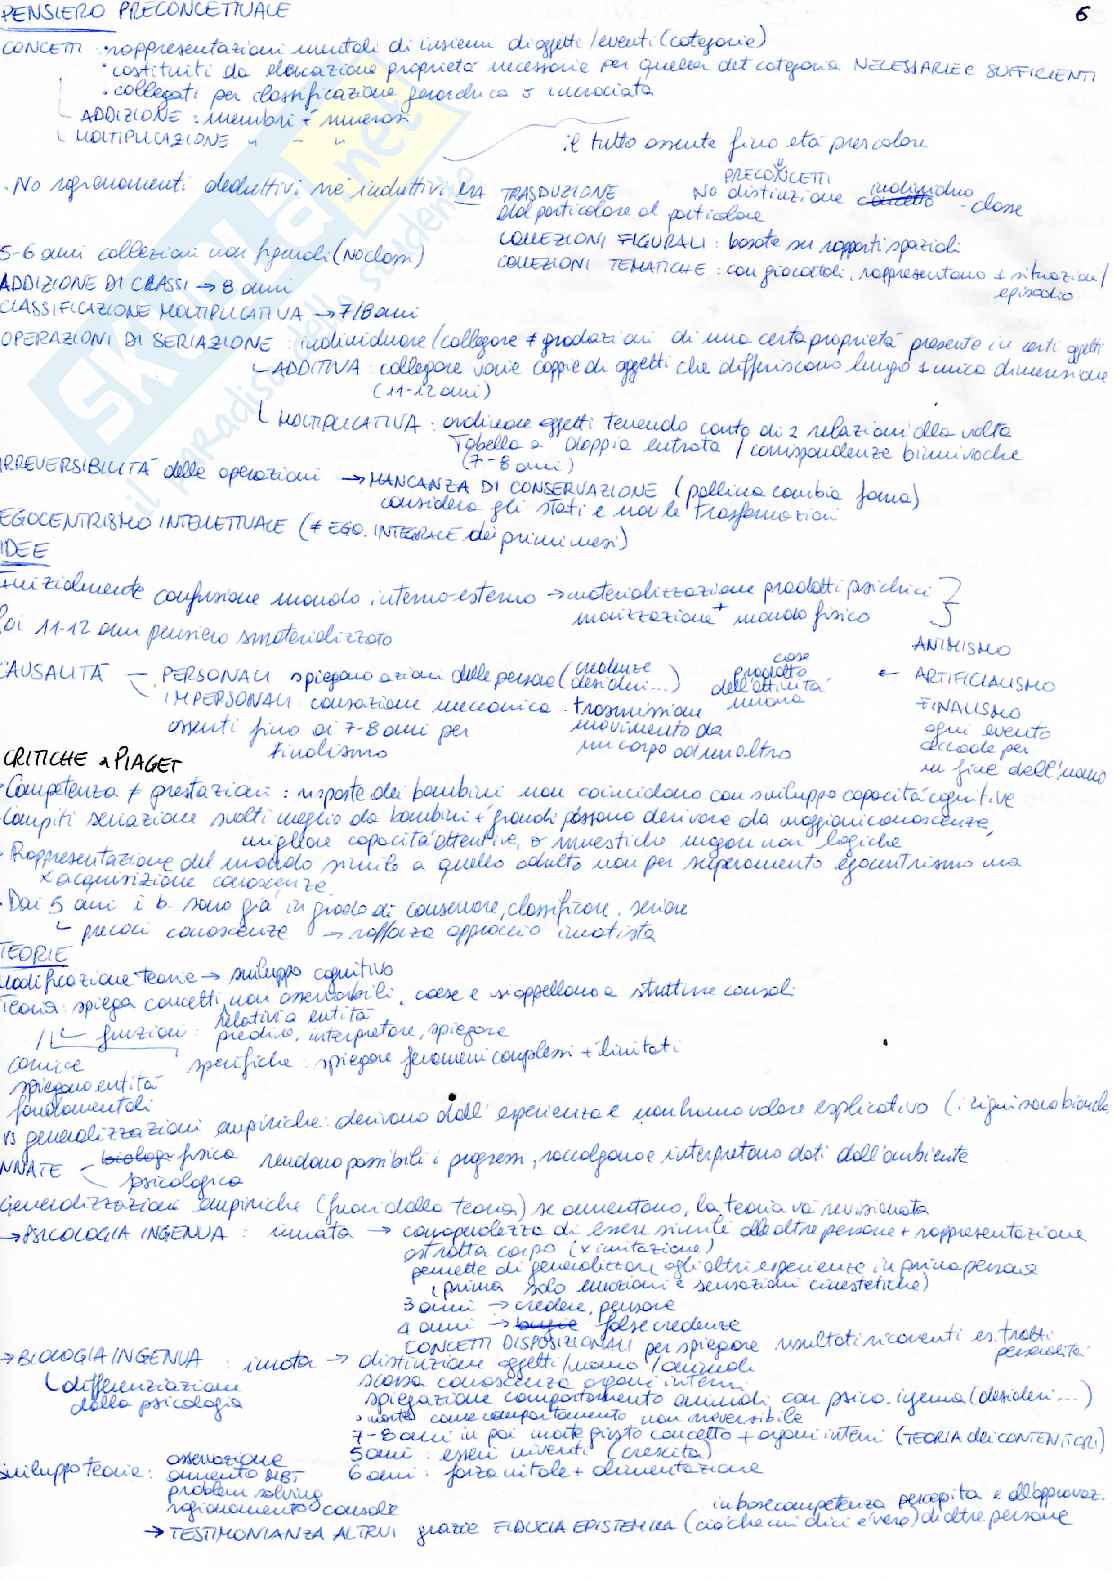 PENSIERO PRECONCETTUALE
6
CONCETTI : • rappresentazioni mentali di insiemi di oggetti/eventi (categorie)
• costituiti da educazione proprietà necessarie per quella det categoria NECESSARIE E SUFFICIENTI
• collegati per classificazione gerarchica o incrociata
ADDIZIONE : membri + numerosi
MOLTIPLICAZIONE " - "
il tutto assente fino età prescolare
PRECONCETTI
• No ragionamenti deduttivi né induttivi MA TRASDUZIONE No distinzione individuo - classe
dal particolare al particolare
COLLEZIONI FIGURALI : basate su rapporti spaziali
5-6 anni collezioni non figurali (No classi)
COLLEZIONI TEMATICHE : con giocattoli, rappresentano 1 situazion/
episodio
ADDIZIONE DI CLASSI → 8 anni
CLASSIFICAZIONE MOLTIPLICATIVA → 7/8 anni
OPERAZIONI DI SERIAZIONE : individuare/collegare ≠ gradazioni di una certa proprietà presente in certi oggetti
ADDITIVA : collegare varie coppie di oggetti che differiscono lungo 1 unica dimensione
(11-12 anni)
MOLTIPLICATIVA : ordinare oggetti tenendo conto di 2 relazioni alla volta
Tabella a doppia entrata / corrispondenze biunivoche
(7-8 anni)
IRREVERSIBILITÀ delle operazioni → MANCANZA DI CONSERVAZIONE (pallina cambia forma)
considera gli stati e non le trasformazioni
EGOCENTRISMO INTELLETTUALE (≠ EGO. INTEGRALE dei primi mesi)
IDEE
Inizialmente confusione mondo interno-esterno → materializzazione prodotti psichici
+
mondo fisico
Poi 11-12 anni pensiero smaterializzato
ANIMISMO
CAUSALITÀ - PERSONALI spiegano azioni delle persone (credenze desideri...)
cose prodotto dell'attività umana ← ARTIFICIALISMO
IMPERSONALI : causazione meccanica - trasmissione movimento da un corpo ad un altro
FINALISMO
ogni evento
accade per
un fine dell'uomo
assenti fino ai 7-8 anni per
finalismo
CRITICHE a PIAGET
• Competenza ≠ prestazioni : risposte dei bambini non coincidono con sviluppo capacità cognitive
• Compiti seriazione svolti meglio da bambini + grandi possono derivare da maggiori conoscenze,
migliore capacità attentive, o mnestiche magari non logiche
• Rappresentazione del mondo simile a quello adulto non per superamento egocentrismo ma
x acquisizione conoscenze
• Dai 5 anni i b. sono già in grado di conservare, classificare, seriare
precoci conoscenze → rafforza approccio innatista
TEORIE
modificazione teorie → sviluppo cognitivo
Teoria : spiega concetti, non osservabili, coese e si appellano a strutture causali
relativi a entità
funzioni : predire, interpretare, spiegare
cornice
spiegano entità
fondamentali
specifiche : spiegare fenomeni complessi + limitati
vs generalizzazioni empiriche : derivano dall'esperienza e non hanno valore esplicativo (i cigni sono bianchi
INNATE - fisica
psicologica
rendono possibili i progressi, raccolgono e interpretano dati dall'ambiente
Generalizzazioni empiriche (fuori dalla teoria) se aumentano, la teoria va revisionata
→ PSICOLOGIA INGENUA : innata → consapevolezza di essere simili alle altre persone + rappresentazione
astratta corpo (x imitazione)
permette di generalizzare agli altri esperienze in prima persona
(prima solo emozioni e sensazioni cinestetiche)
3 anni → credere, pensare
4 anni → false credenze
CONCETTI DISPOSIZIONALI per spiegare risultati ricorrenti es. tratti
personalità
→ BIOLOGIA INGENUA : innata → distinzione oggetti/uomo/animali
differenziazione
dalla psicologia
scarsa conoscenza organi interni
spiegazione comportamento animali con psico. ingenua (desideri...)
• morte come comportamento non irreversibile
7-8 anni in poi morte giusto concetto + organi interni (TEORIA dei CONTENITORI)
5 anni : esseri viventi (crescita)
6 anni : forza vitale + alimentazione
Sviluppo teorie : osservazione
aumento MBT
problem solving
ragionamento causale
in base competenza percepita e all'approvaz.
→ TESTIMONIANZA ALTRUI grazie FIDUCIA EPISTEMICA (ciò che mi dici è vero) di altre persone
skuola.net
il paradiso dello studente